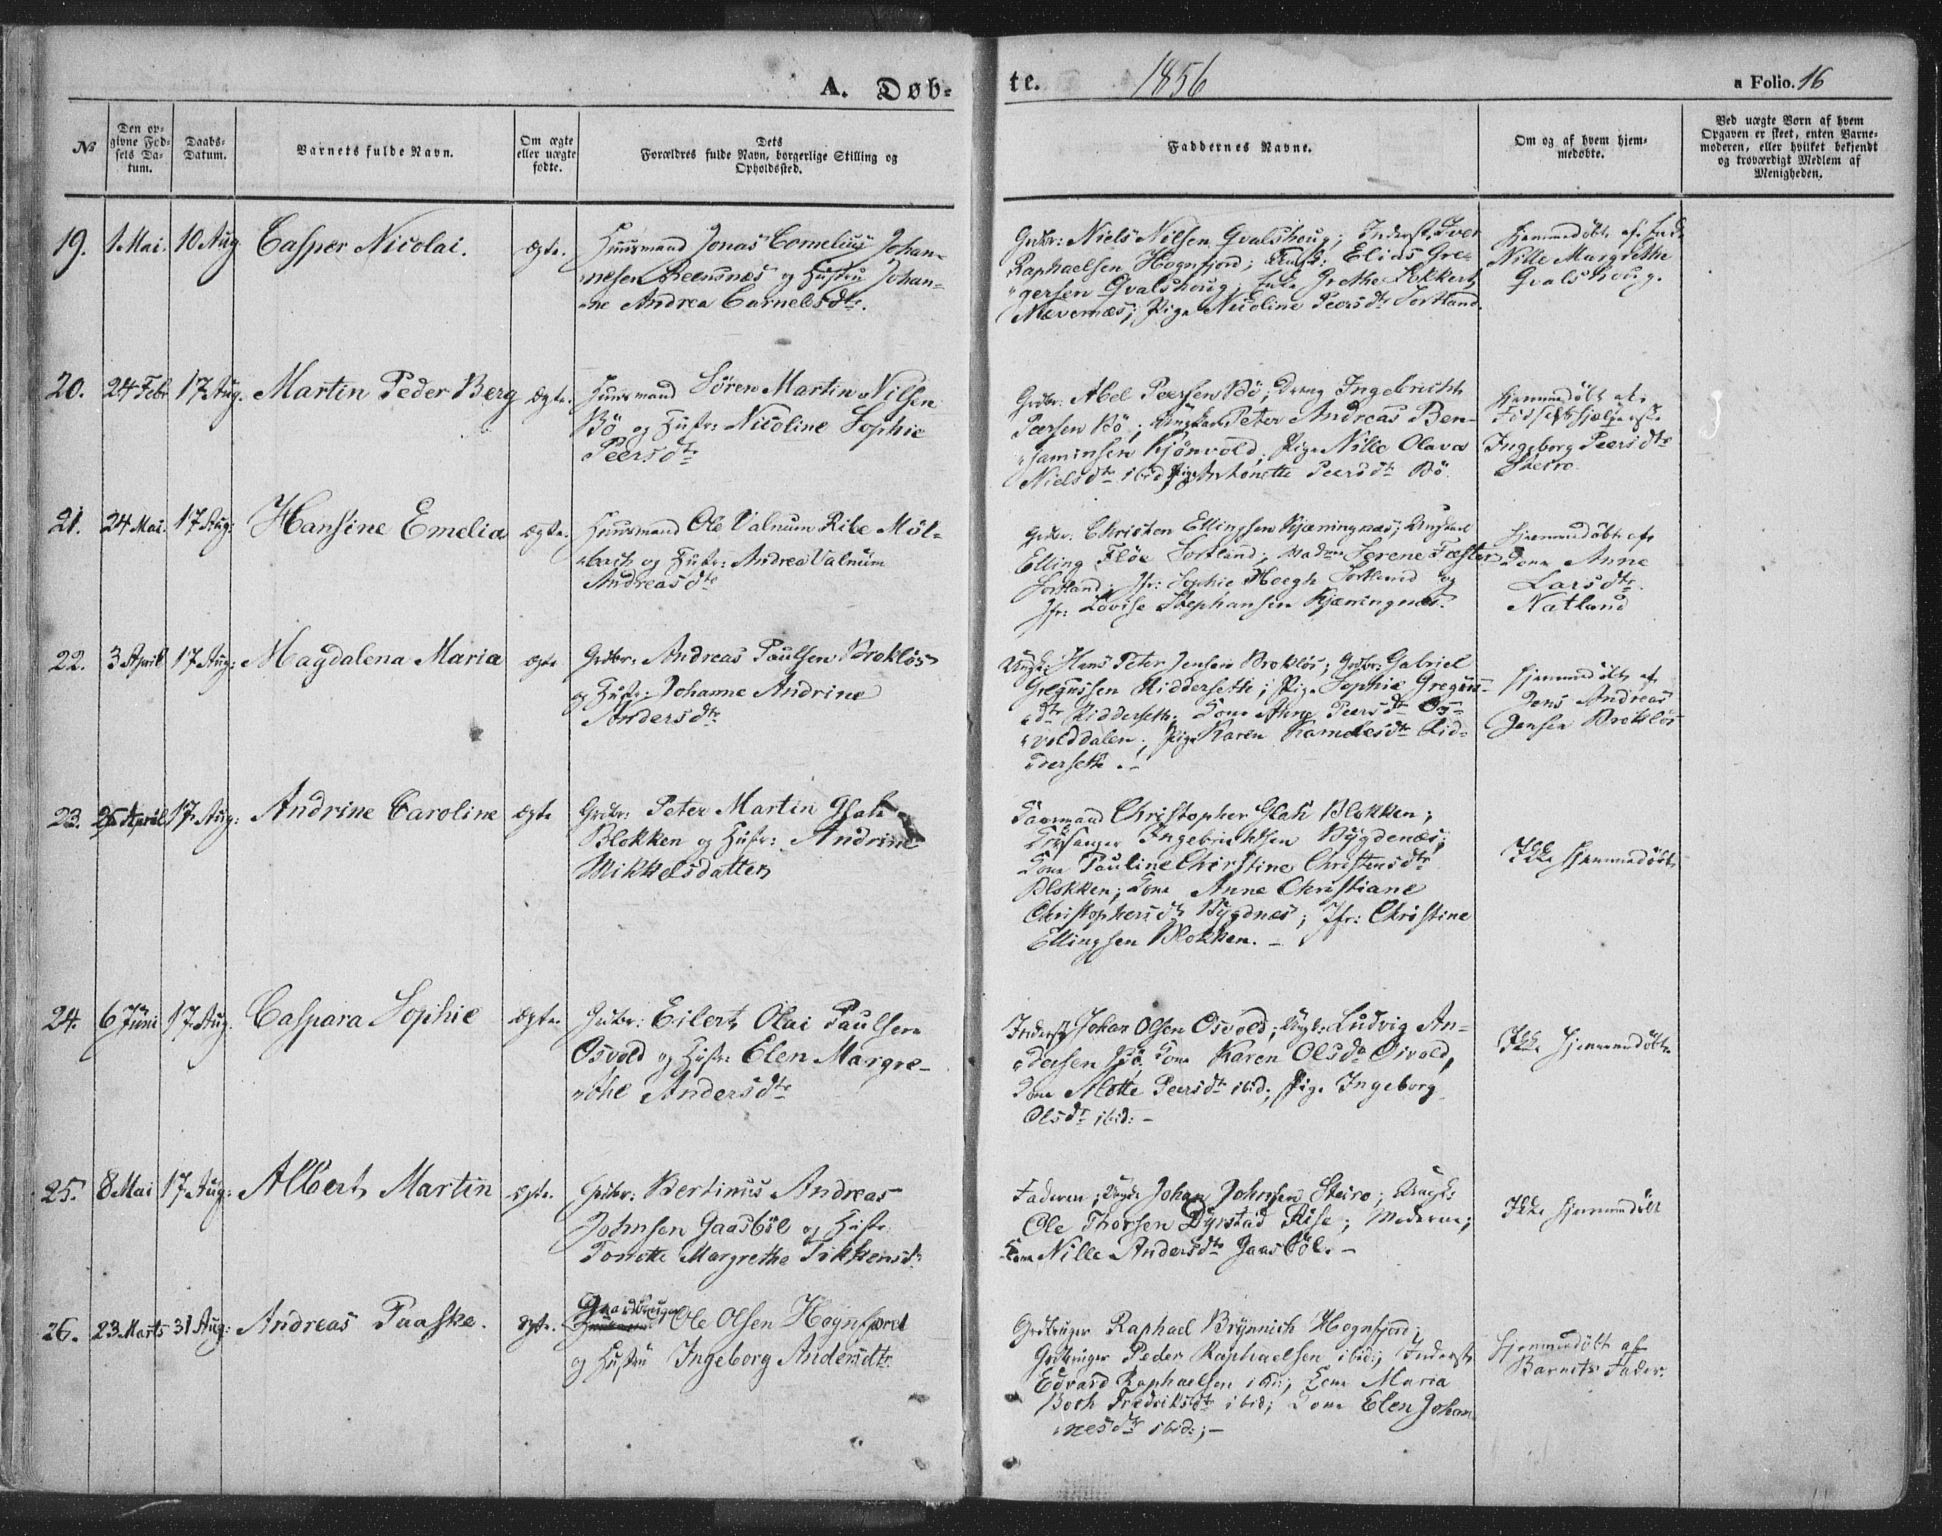 A. Døb-
te.
1856
a Folio. 16
№
Den op-
givne Fød-
sels Da-
tum.
Daabs-
Datum.
Barnets fulde Navn.
Om ægte
eller uægte
fødte.
Dets
Forældres fulde Navn, borgerlige Stilling og
Opholdssted.
Faddernes Navne.
Om og af hvem hjem-
medøbte.
Ved uægte Børn af hvem
Opgaven er skeet, enten Barne-
moderen, eller hvilket bekjendt
og troværdigt Medlem af
Menigheden.
19. 1 Mai. 10 Aug Casper Nicolai. ægte.
Huusmand Jonas Cornelius Johan-
nesen Reensnes og Hustru Johan-
ne Andrea Cornelsdtr.
Grbr: Niels Nilsen Qvalshoug; Inderst Iver
Raphaelsen Hognfjord; Elias Gre-
gersen Qvalshoug; Enke Grethe Lokkert
Nævernæs; Pige Nicoline Peersdtr Sortland.
Hjemmedøbt af Enke
Nille Margrethe
Qvalshoug.
20. 24 Febr 17 Aug. Martin Peder Berg ægte.
Huusmand Sören Martin Nilsen
Bö og Hustr: Nicoline Sophie
Peersdtr
Grbr: Abel Peersen Bö; Dreng Ingebricht
Peersen Bö; Ungkarl Peter Andreas Ben-
jaminsen Kjönvold; Pige Nille Olava
Nielsdtr ibid; Pige Antonette Peersdtr Bö
Hjemmedöbt af
Fødselshjælperske
Ingeborg Peersdtr
Steiro.
21. 24 Mai. 17 Aug: Hansine Emelia ægte.
Huusmand Ole Valnum Ribe Möl-
bach og Hustr: Andrea Valnum
Andreasdtr
Grbr: Christen Ellingsen Kjæningnæs; Ungkarl
Elling Flöe Sortland; Madm Serene Fæster
Sortland; Jfr: Sophie Hoegh Sortland og
Jfr: Lovise Stephansen Kjæningnæs.
Hjemmedöbt af
Kone Anne
Larsdtr.
Natland
22. 3 April 17 Aug: Magdalena Maria ægte
Grdbr: Andreas Paulsen Brokløs
og Hustr: Johanne Andrine
Andersdtr
Ungk: Hans Peter Jensen Brokløs; Grdbr: Gabriel
Gregusen Ridderseth; Pige Sophie Gregus-
dtr Ridderseth; Kone Anne Peersdtr Os-
volddalen; Pige Karen Kornelisdtr Rid-
derseth.-
Hjemmedöbt af
Jens Andreas
Jensen Brokløs
23. 25 April 17 Aug: Andrine Caroline ægte
Grdbr: Peter Martin Glah
Blokken og Hustr: Andrine
Mikkelsdatter
Faermand Christopher Glah Blokken;
Kirkesanger Ingebrichtsen Bÿgdenæs;
Kone Pauline Christine Christensdtr
Blokken; Kone Anne Christiane
Christophersdtr Bÿgdnæs; Jfr: Christine
Ellingsen Blokken. -
Ikke hjemmedöbt
24. 6 Juni 17 Aug. Caspara Sophie ægte.
Grdbr: Eilert Olai Paulsen
Osvold og Hustr: Elen Margre-
the Andersdtr
Inderst Johan Olsen Osvold; Ungk: Ludvig An-
dersen Bö. Kone Karen Olsdtr Osvold,
Kone Alotte Peersdtr ibid; Pige Ingeborg
Olsdtr ibid: -
Ikke Hjemmedöbt
25. 8 Mai 17 Aug: Albert Martin ægte.
Grdbr: Bertinus Andreas
Johnsen Gaasböl og Hustr
Tonette Margrethe Tikkensdr
Faderen; Ungk: Johan Johnsen Steiro; Ungk:
Ole Thorsen Dÿrstad Rise; Moderen;
Kone Nille Andersdtr Gaasböl. -
Ikke hjemmedöbt
26. 23 Marts 31 Aug: Andreas Paaske. ægte.
Gaardbruger Ole Olsen Hognfjord
og Hustru Ingeborg Andersdtr
Grdbruger Raphael Brÿnnich Hognfjord;
Grdbruger Peder Raphaelsen ibid; Inderst
Edvard Raphaelsen ibid; Kone Maria
Both Fredriksdtr ibid; Kone Elen Johan-
nesdtr ibid:;-
Hjemmedöbt af
Barnets Fader.